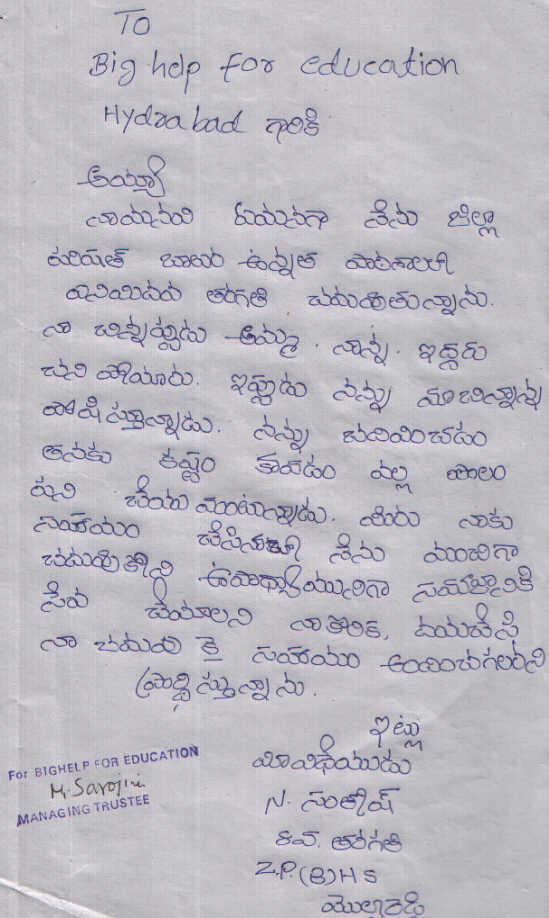 TO
Big help for education
Hydrabad గారికి
అయ్యా
నాయనమ నేను జిల్లా
పరిషత్ బాలుర ఉన్నత పాఠశాలలో
ఎనిమిదవ తరగతి చదువుతున్నాను.
నా చిన్నప్పుడు అమ్మ. నాన్న. ఇద్దరు
చని పోయారు. ఇప్పుడు నన్ను మాచిన్నాన్న
పోషిస్తూన్నాడు. నన్ను చదివించడం
తనకు కష్టం కావడం వల్ల పొలం
పని చేయు మంటున్నాడు. మీరు నాకు
సహాయం చేసినచో నేను మంచిగా
చదువుకొని ఉపాధ్యాయునిగా సమాజానికి
సేవ చేయాలని నాకోరిక, దయచేసి
నా చదువు కై సహాయం అందించగలరని
ప్రార్థిస్తున్నాను.
ఇట్లు
మీవిధేయుడు
N. సంతోష్
8వ. తరగతి
Z.P.(B)HS
For BIGHELP FOR EDUCATION
M. Sarojini
MANAGING TRUSTEE